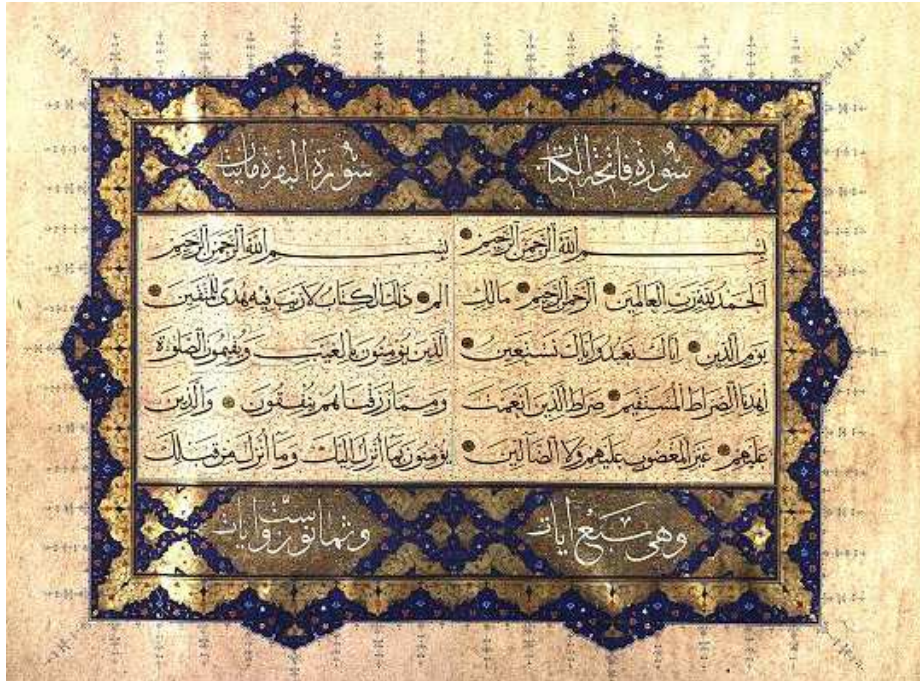 سورة فاتحة الكتاب
بسم الله الرحمن الرحيم
الحمد لله رب العالمين الرحمن الرحيم مالك
يوم الدين اياك نعبد واياك نستعين
اهدنا الصراط المستقيم صراط الذين انعمت
عليهم غير المغضوب عليهم ولا الضالين
وهي سبع ايات
سورة البقرة مايتان
بسم الله الرحمن الرحيم
الم ذلك الكتاب لا ريب فيه هدى للمتقين
الذين يؤمنون بالغيب ويقيمون الصلوة
ومما رزقناهم ينفقون والذين
يؤمنون بما انزل اليك وما انزل من قبلك
وثمانون وست ايات